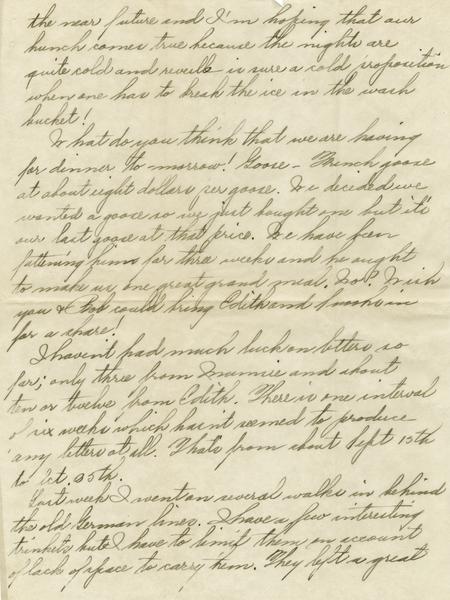 the near future and I'm hoping that our
hunch comes true because the nights are
quite cold and reveille is sure a cold proposition
when one has to break the ice in the wash
bucket!
What do you think that we are having
for dinner to-morrow! Goose - French goose
at about eight dollars per goose. We decided we
wanted a goose so we just bought one but it's
our last goose at that price. We have been
fattening him for three weeks and he ought
to make us one great grand meal. No? Wish
you & Bob could bring Edith and in
for a share.
I haven't had much luck on letters so
far; only three from Mumsie and about
ten or twelve from Edith. There is one interval
of six weeks which hasn't seemed to produce
any letters at all. That's from about Sept 15th
to Oct. 25th.
Last week I went on several walks in behind
the old German lines. I have a few interesting
trinkets but I have to limit them on account
of lack of space to carry 'em. They left a great